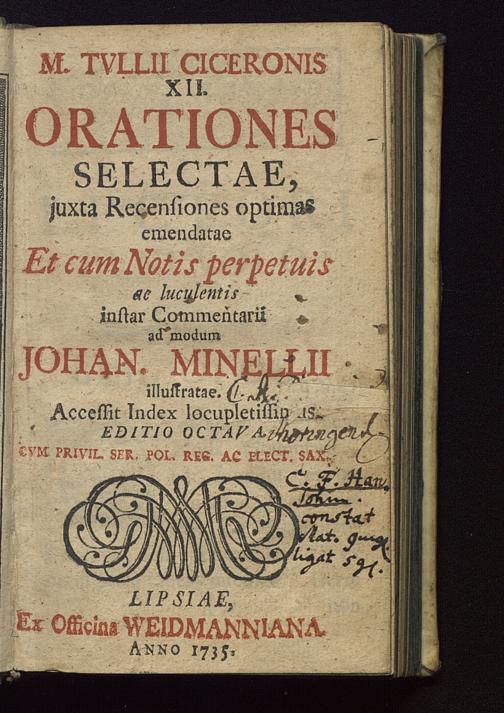 M. TVLLII CICERONIS
XII.
ORATIONES
SELECTAE,
juxta Recensiones optimas
emendatae
Et cum Notis perpetuis
ac luculentis
instar Commentarii
ad modum
JOHAN. MINELLII
illustratae.
Accessit Index locupletissimus.
EDITIO OCTAVA.
CVM PRIVIL. SER. POL. REG. AC ELECT. SAX.
C. F. Han
John.
constat
ligat 5 gl.
LIPSIAE,
Ex Officina WEIDMANNIANA.
ANNO 1735.